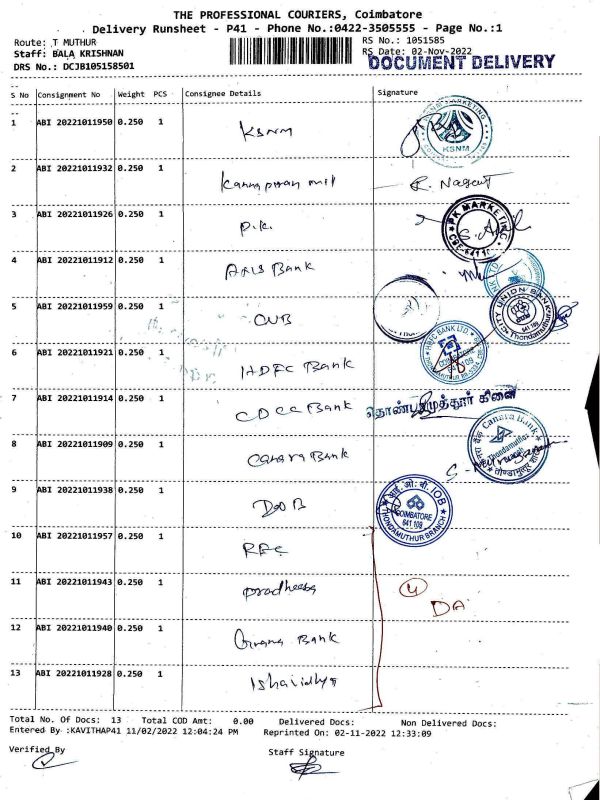 THE PROFESSIONAL COURIERS, Coimbatore
Delivery Runsheet - P41 - Phone No.:0422-3505555 - Page No.:1
Route: T MUTHUR
RS No.: 1051585
Staff: BALA KRISHNAN
RS Date: 02-Nov-2022
DRS No.: DCJB105158501
DOCUMENT DELIVERY
S No Consignment No Weight PCS Consignee Details Signature
1 ABI 20221011950 0.250 1 KSNM
KSNM
2 ABI 20221011932 0.250 1 Kannapiran mil R. Nagaraj
3 ABI 20221011926 0.250 1 P.K.
PK MARKETING
4 ABI 20221011912 0.250 1 AXIS Bank
5 ABI 20221011959 0.250 1 CUB
CITY UNION BANK
641 109
Thondamuthur
6 ABI 20221011921 0.250 1 HDFC Bank
HDFC BANK LTD
7 ABI 20221011914 0.250 1 CDCC Bank தொண்டாமுத்தூர் கிளை
8 ABI 20221011909 0.250 1 Canara Bank
Canara Bank
Thondamuthur
9 ABI 20221011938 0.250 1
आई.ओ.बी. IOB
COIMBATORE
641 109
THONDAMUTHUR BRANCH
10 ABI 20221011957 0.250 1
11 ABI 20221011943 0.250 1 Pradheeba
4
DA
12 ABI 20221011940 0.250 1 Bank
13 ABI 20221011928 0.250 1
Total No. Of Docs: 13 Total COD Amt: 0.00 Delivered Docs: Non Delivered Docs:
Entered By :KAVITHAP41 11/02/2022 12:04:24 PM Reprinted On: 02-11-2022 12:33:09
Verified By
Staff Signature